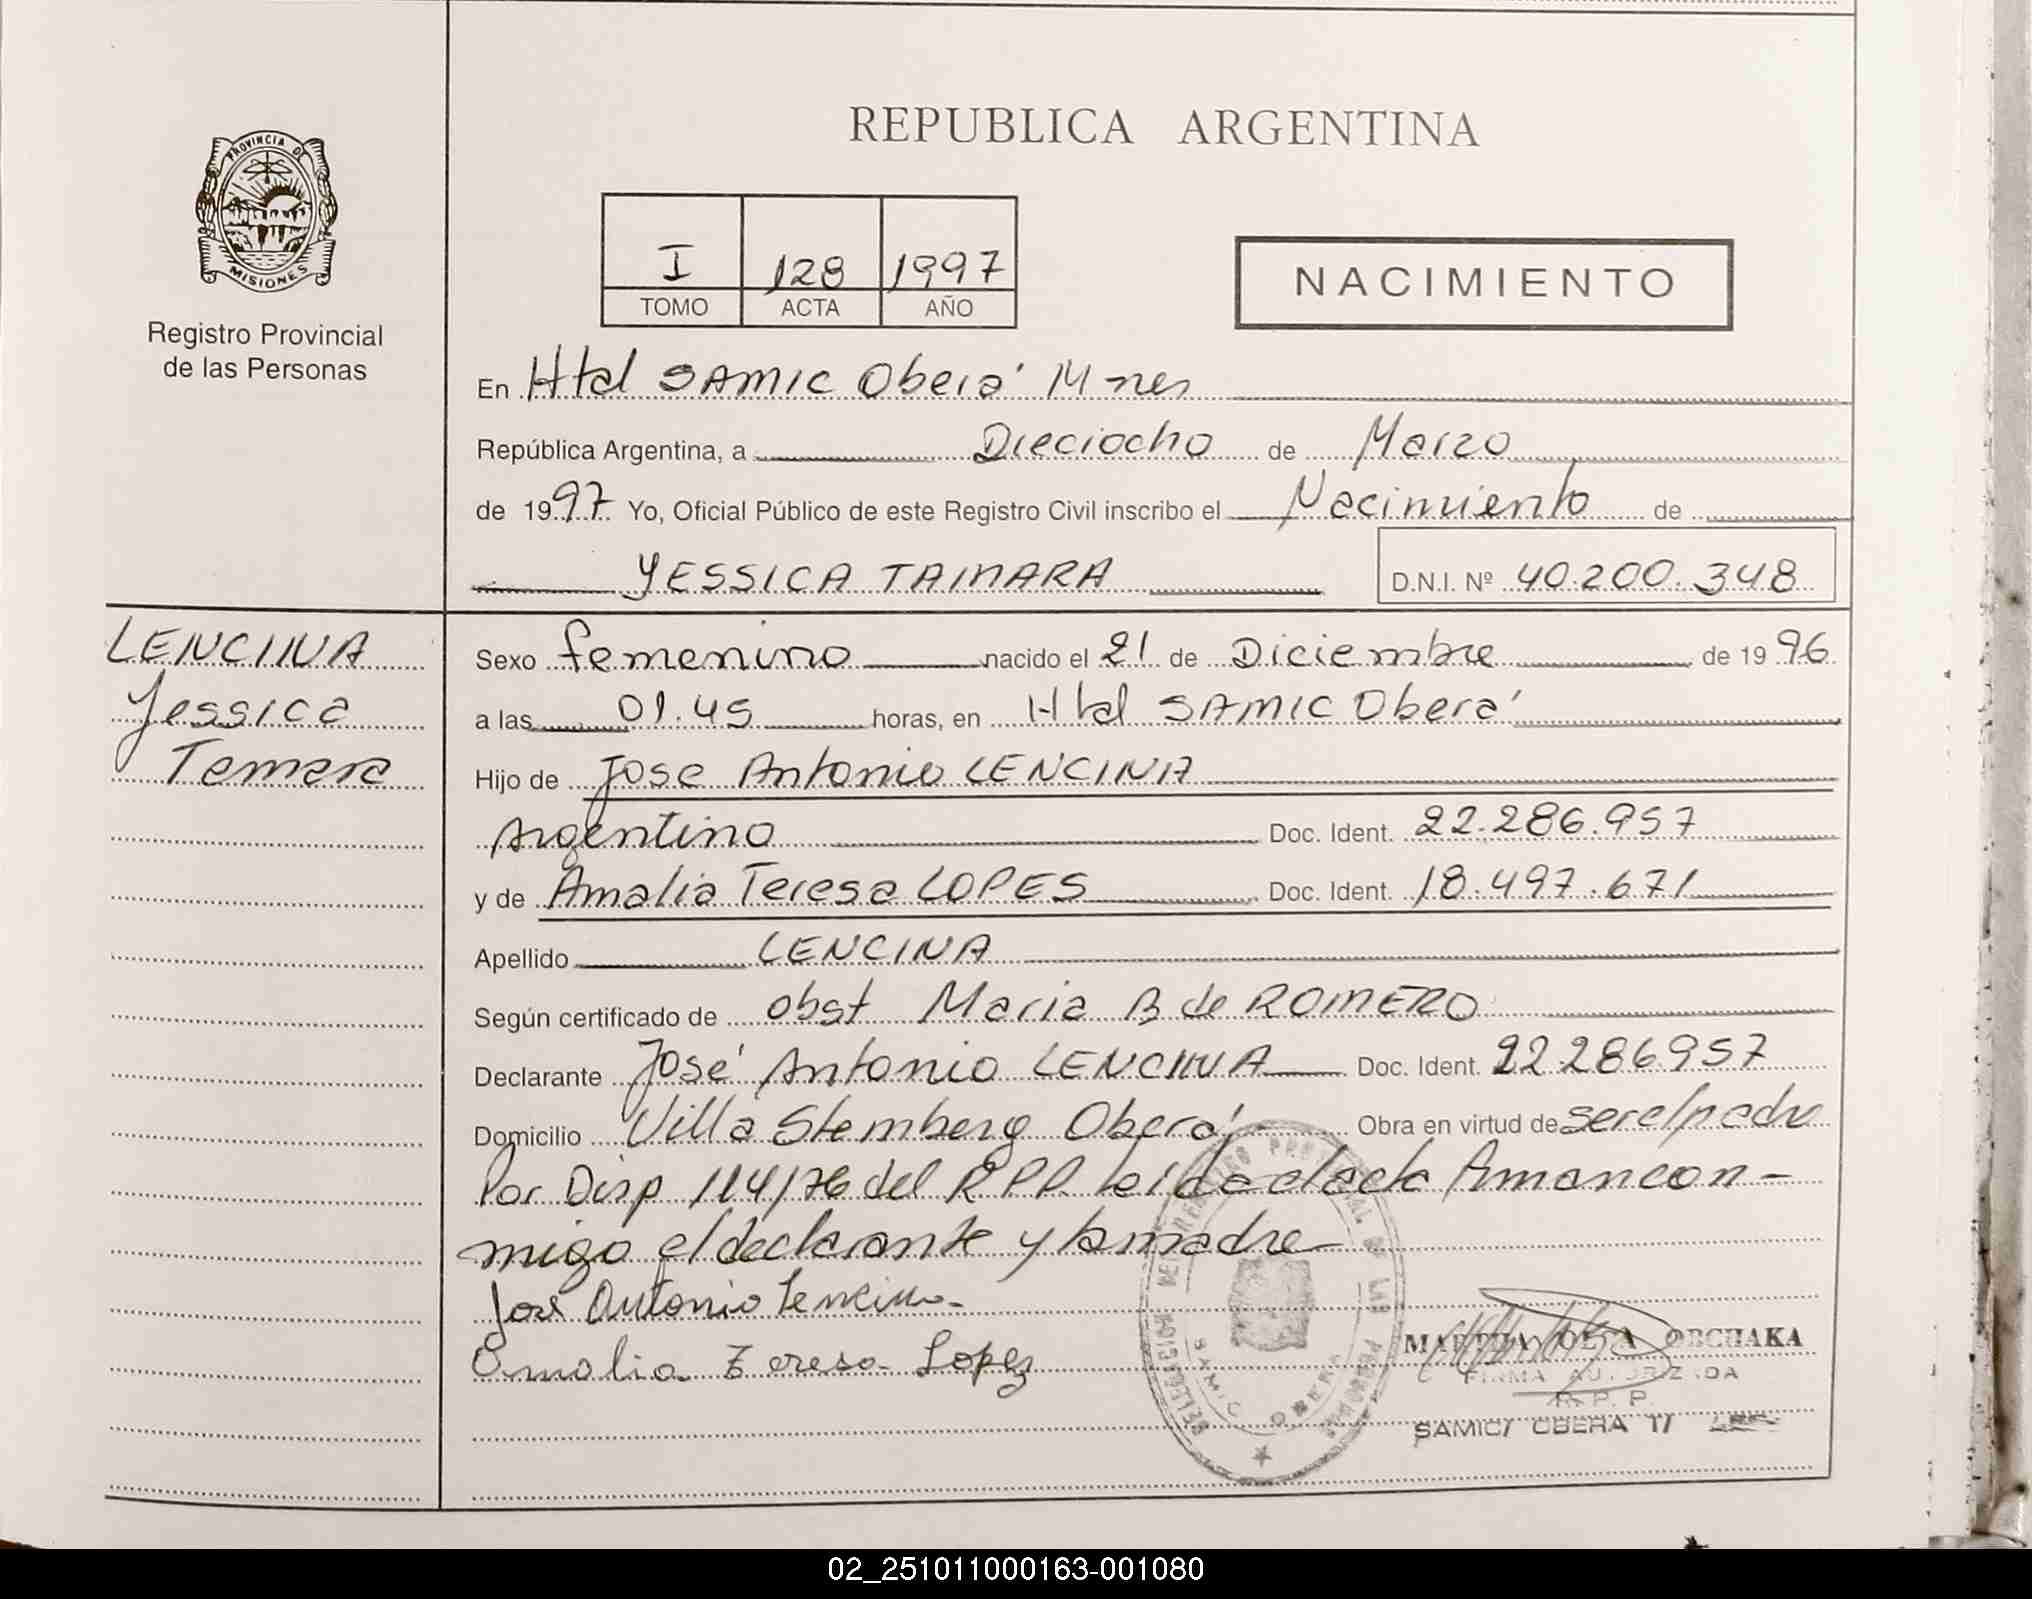 REPUBLICA ARGENTINA
PROVINCIA DE
MISIONES
Registro Provincial
de las Personas
I 128 1997
TOMO ACTA AÑO
NACIMIENTO
En Htal SAMIC Oberá Mnes
República Argentina, a Dieciocho de Marzo
de 1997 Yo, Oficial Público de este Registro Civil inscribo el Nacimiento de
YESSICA TAMARA D.N.I. Nº 40.200.348
LENCINA
Yessica
Tamara
Sexo femenino nacido el 21 de Diciembre de 1996
a las 01.45 horas, en Htal SAMIC Oberá
Hijo de Jose Antonio LENCINA
Argentino Doc. Ident. 22.286.957
y de Amalia Teresa LOPES Doc. Ident. 18.497.671
Apellido LENCINA
Según certificado de obst Maria B de ROMERO
Declarante José Antonio LENCINA Doc. Ident. 22.286957
Domicilio Villa Stemberg Oberá Obra en virtud de ser el padre
Por Disp 114/76 del RPP. leida el acta firman con-
migo el declarante y la madre
José Antonio Lencina.
Amalia Teresa Lopez
MARTHA OLGA OBCHAKA
FIRMA AUTORIZADA
R.P.P.
SAMIC/ OBERA
PROVINCIAL DE LAS PERSONAS
SAMIC OBERA
02_251011000163-001080